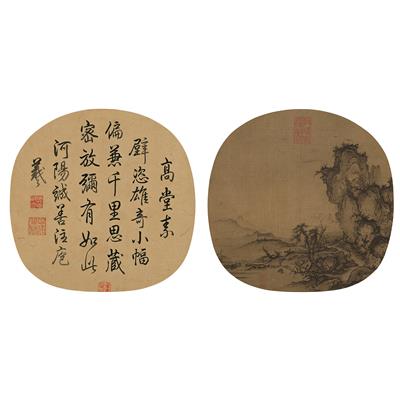 高堂素
壁恣雄奇小幅
偏兼千里思藏
密放彌有如此
河陽誠善活庖
羲